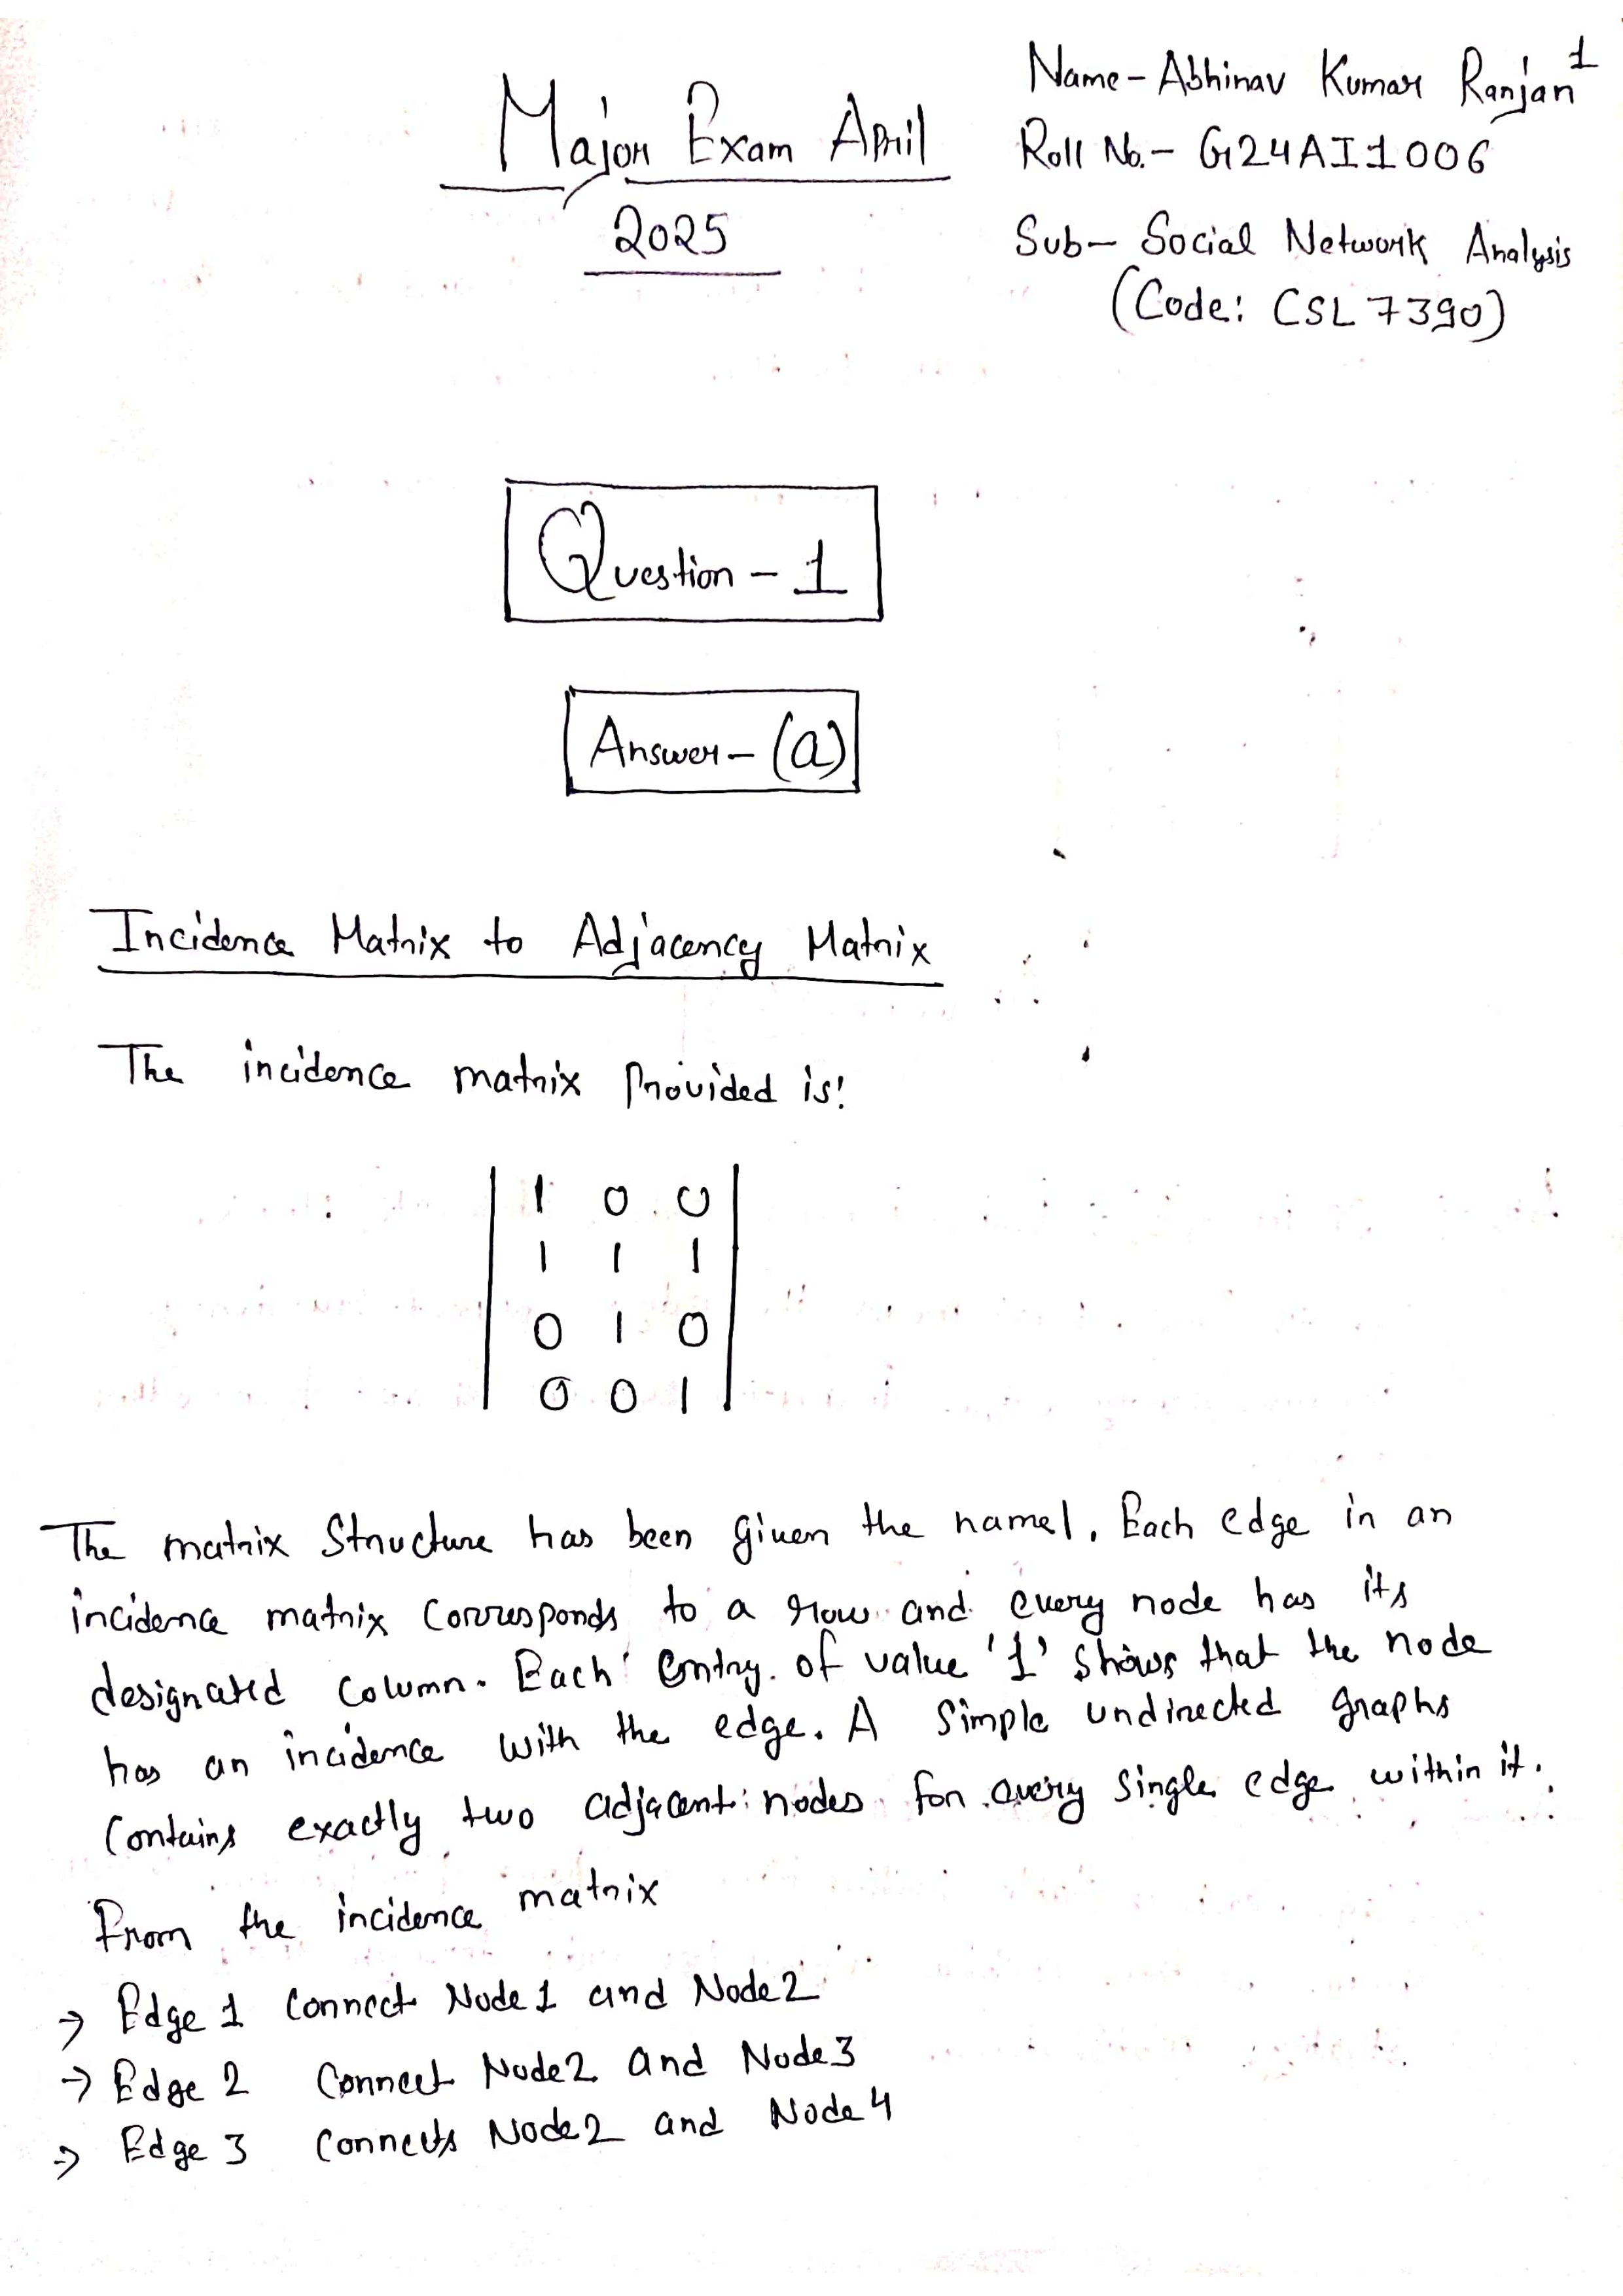 1
Name - Abhinav Kumar Ranjan
Major Exam April
Roll No. - G24AI1006
2025
Sub - Social Network Analysis
(Code: CSL 7390)
Question - 1
Answer - (a)
Incidence Matrix to Adjacency Matrix
The incidence matrix Provided is:
1 0 0
1 1 1
0 1 0
0 0 1
The matrix Structure has been given the name1. Each edge in an
incidence matrix Corresponds to a row and every node has its
designated column. Each entry of value '1' shows that the node
has an incidence with the edge. A Simple undirected graphs
Contains exactly two adjacent nodes for every single edge within it.
From the incidence matrix
→ Edge 1 Connect Node 1 and Node 2
→ Edge 2 Connect Node 2 and Node 3
→ Edge 3 Connects Node 2 and Node 4